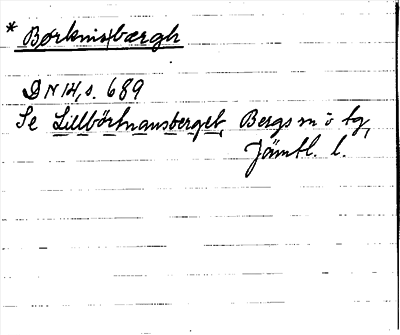 * Børknisbærgh
DN 14, s. 689
Se Lillbörtnansberget, Bergs sn o tg,
Jämtl. l.